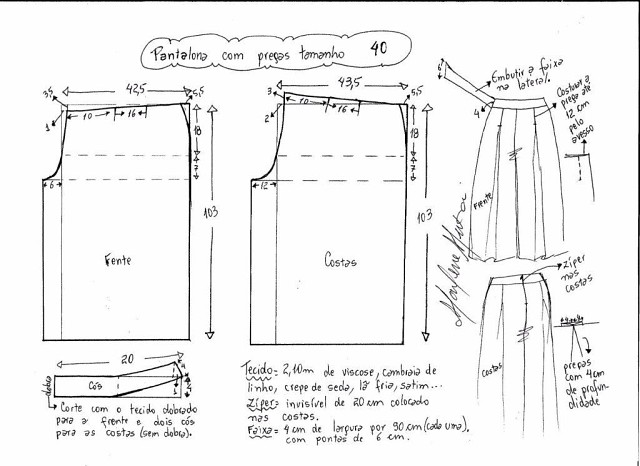 Pantalona com pregas tamanho 40
42,5
3,5
5,5
1
10
16
18
7
6
103
Frente
43,5
3
5,5
2
10
16
18
7
12
103
Costas
6
Embutir a faixa
na lateral.
4
Costurar a
prega até
12 cm
pelo
avesso
Frente
Marlene Mukai
zíper
nas
costas
costas
pregas
com 4cm
de profun
didade
20
dobra
Cós
Corte com o tecido dobrado
para a frente e dois cós
para as costas (sem dobra).
Tecido = 2,10m de viscose, cambraia de
linho, crepe de seda, lã fria, satim...
Zíper = invisível de 20 cm colocado
nas costas.
Faixa = 4 cm de largura por 90 cm (cada uma).
com pontas de 6 cm.